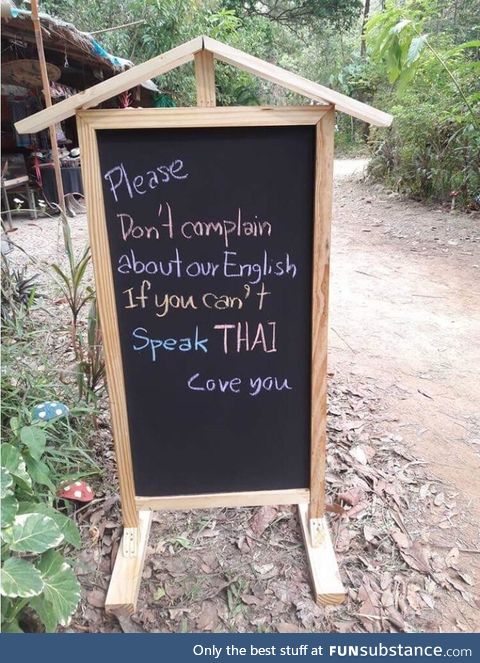 Please
Don't complain
about our English
If you can't
Speak THAI
Love you
Only the best stuff at FUNsubstance.com